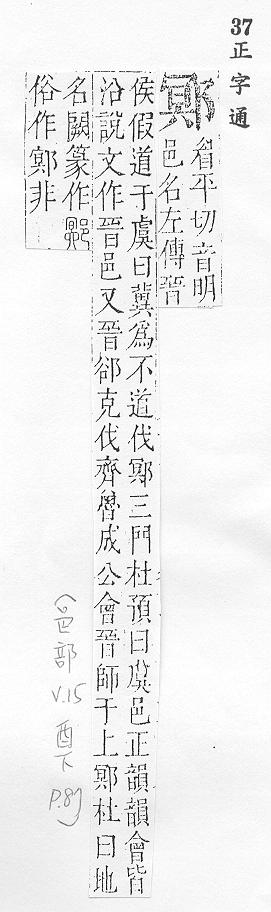 37正字通
鄍
眉平切音明
邑名左傳晉
侯假道于虞曰冀爲不道伐鄍三門杜預曰虞邑正韻韻會皆
沿說文作晉邑又晉郤克伐齊魯成公會晉師于上鄍杜曰地
名闕篆作鄍
俗作鄍非
(邑部 V.15 酉下 P.87)